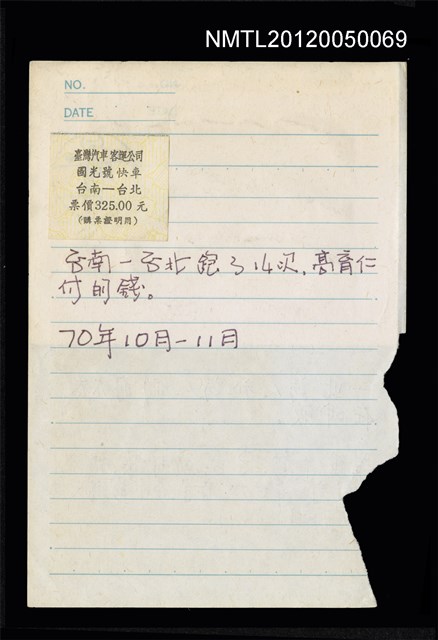 NMTL20120050069
NO.
DATE
臺灣汽車客運公司
國光號快車
台南—台北
票價325.00元
(購票證明用)
台南—台北跑了14次,高育仁
付的錢。
70年10月—11月